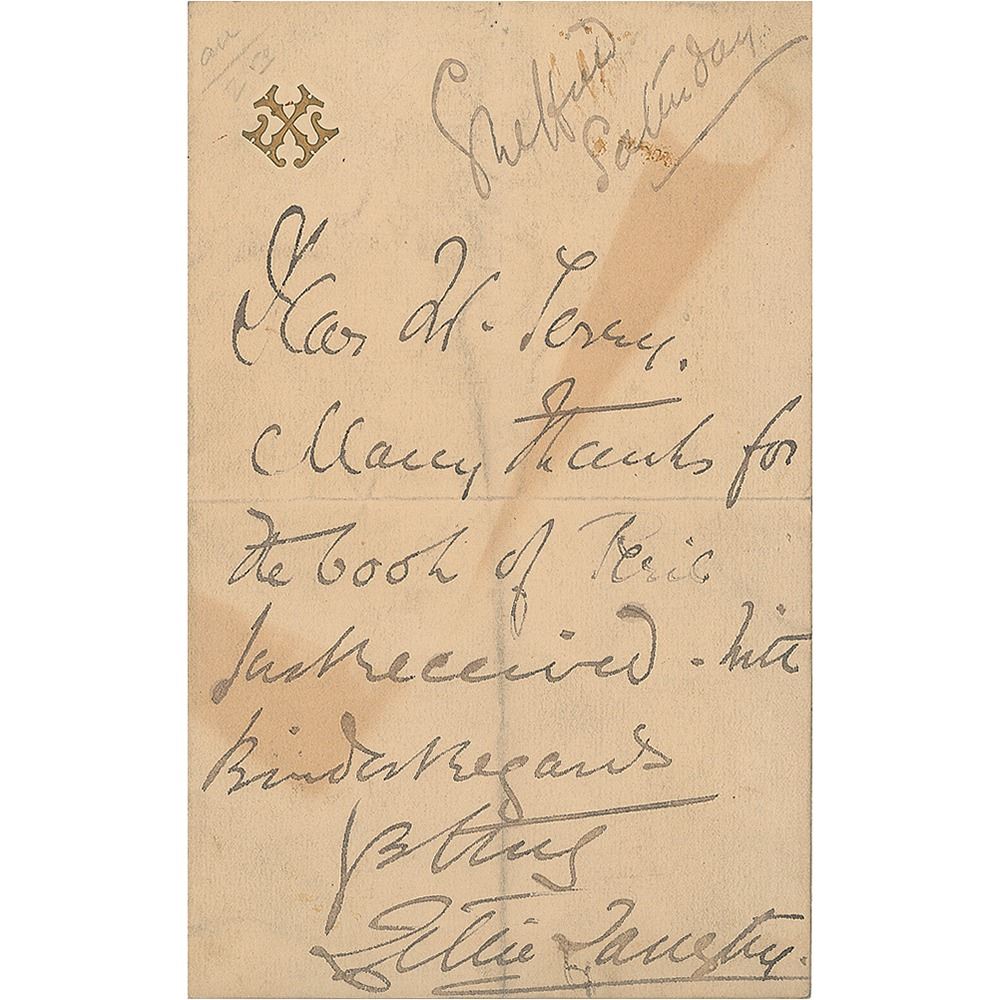 Sheffield
Saturday
Dear Mr. Terry.
Many thanks for
the book of
just received - with
kindest regards
Lillie Langtry.